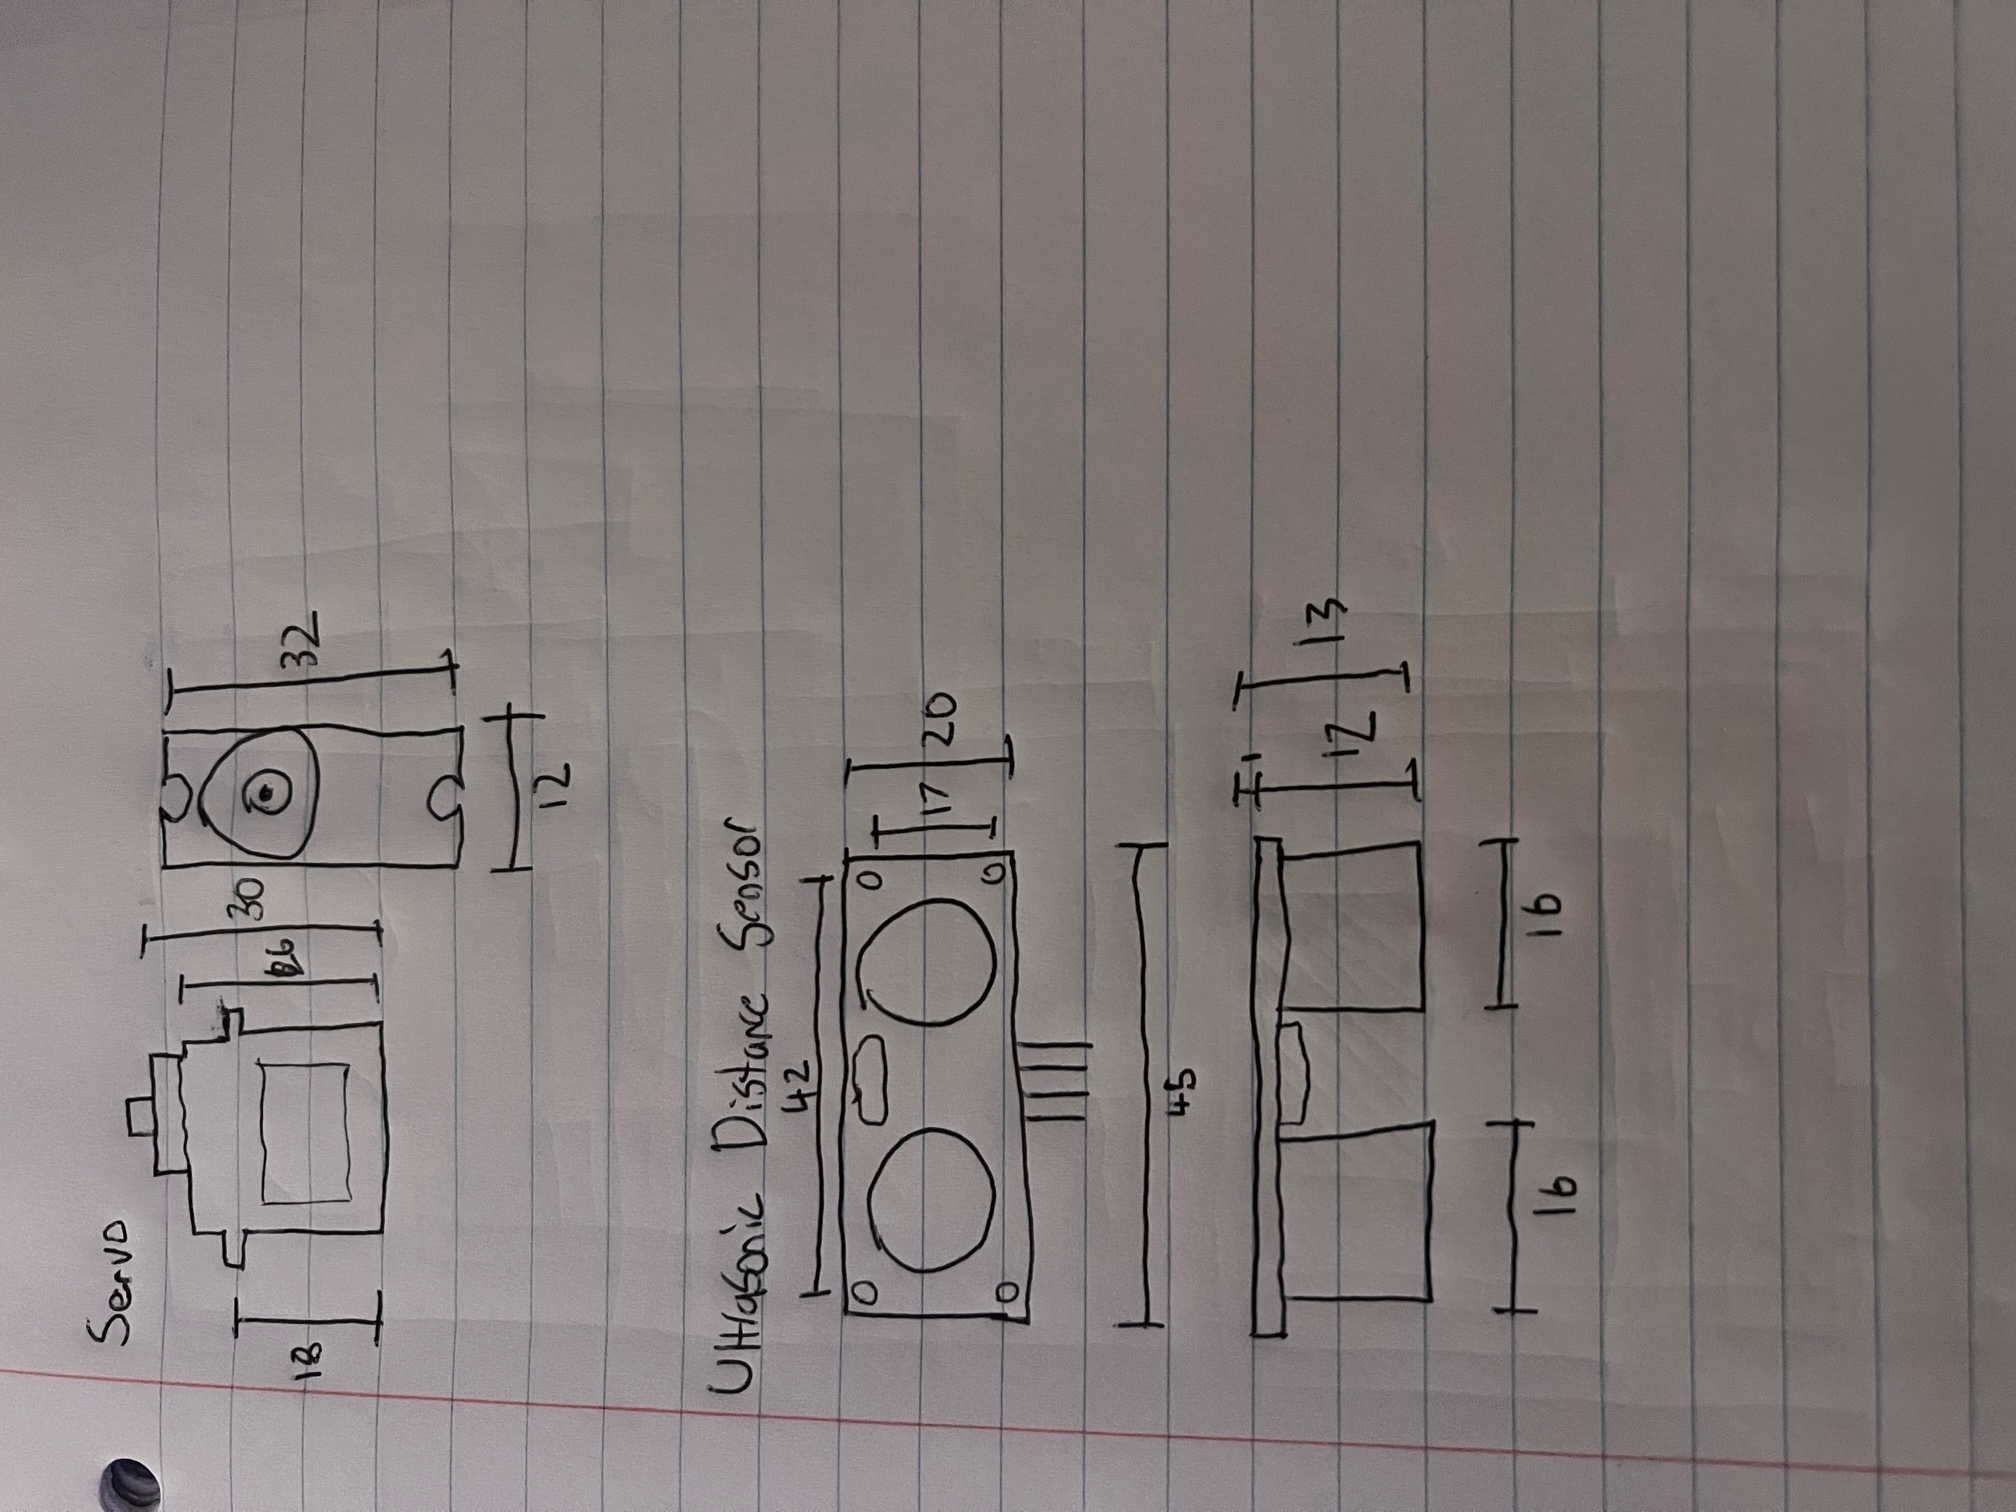 Servo
30
26
18
32
12
Ultrasonic Distance Sensor
42
17 20
45
1
12 13
16 16